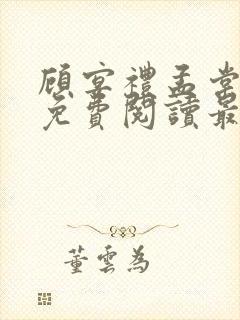 顾宴禮孟棠
免費閱讀最
董雲為